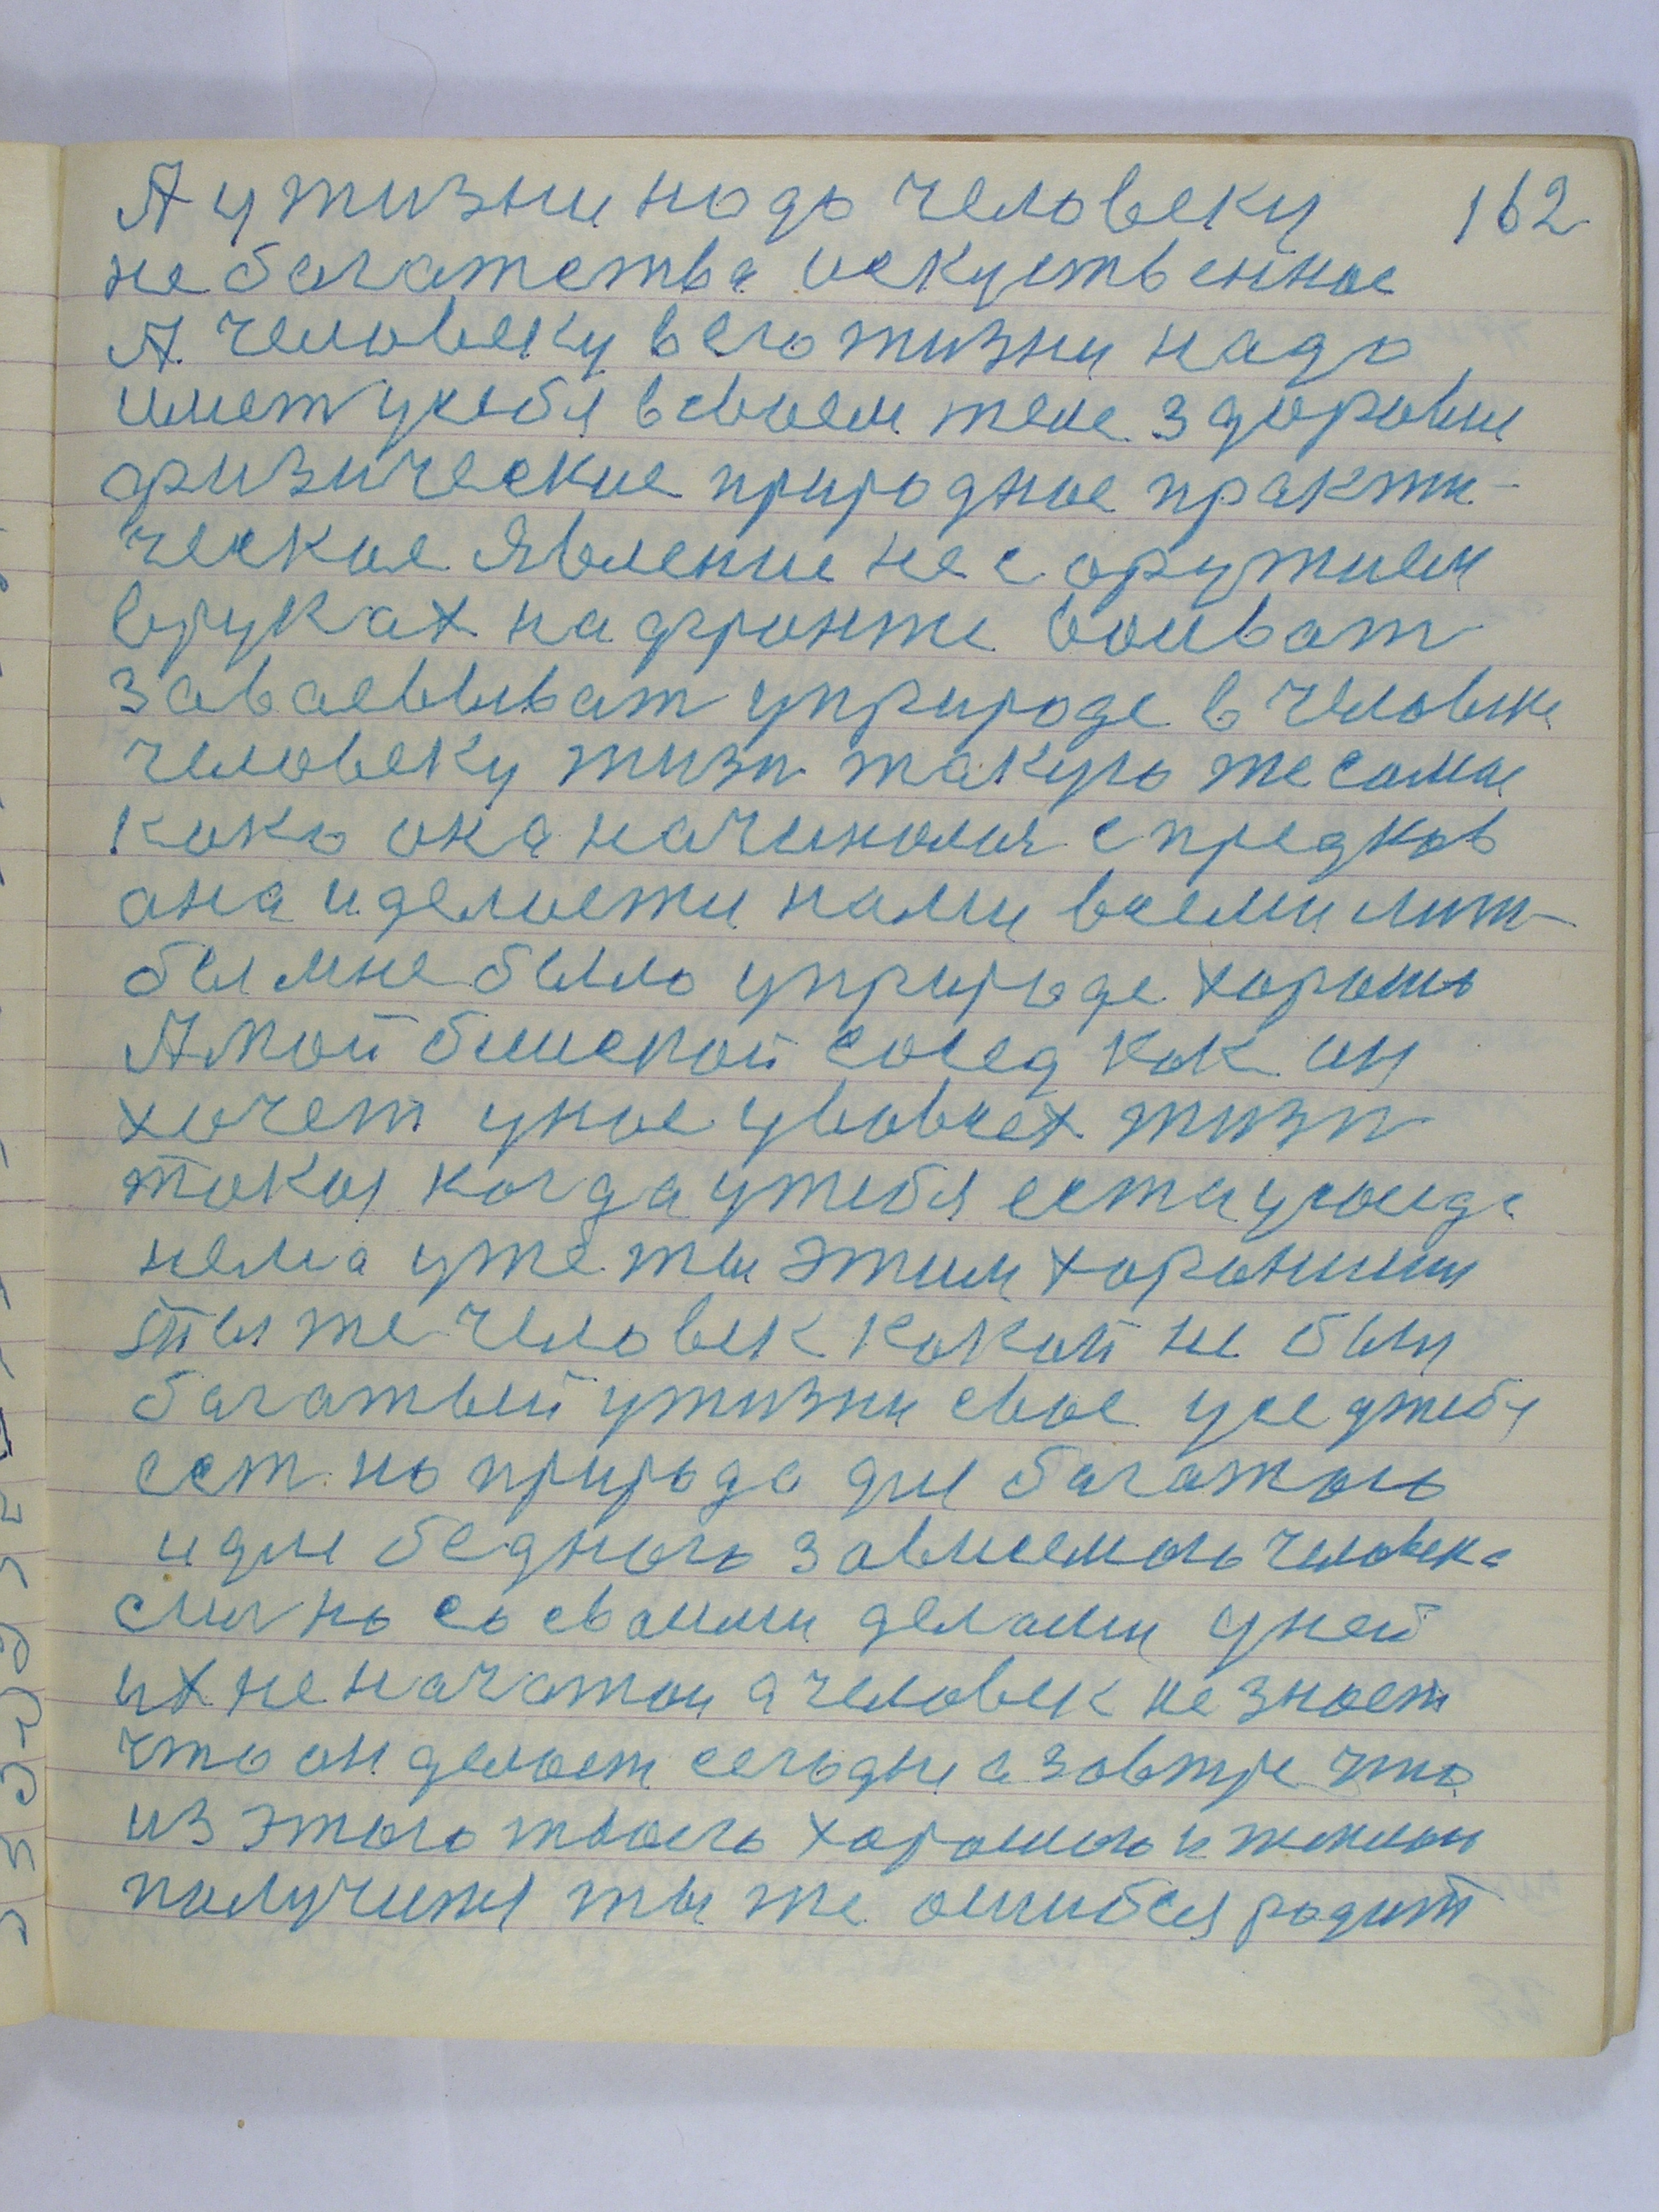 А у жизни надо человеку 162
не богатства искуственное
А человеку в его жизни надо
имет у себя в своем теле здоровие
физические природное практи-
ческое явление не с оружием
в руках на фронте воиват
заваевыват у природе в человеке
человеку жизн такую же самое
како она начиналня с предков
она и делаети нами всеми лиж-
бы мне было у природе хорошо
А мой близский сосед как он
хочет у нас у во всех жизн
такоя когда у тебя ести у соседа
нема уже ты этим хорониш
Ты же человек какой не был
багатый у жизни свое усе у тебя
ест но природа для багатого
и для бедного зависемого человека
с ими но со своими делами у ней
их не начатои а человек не знает
что он делает сегодне а завтре что
из этого твоего хорошого и теплои
получитя ты же ошибся родит